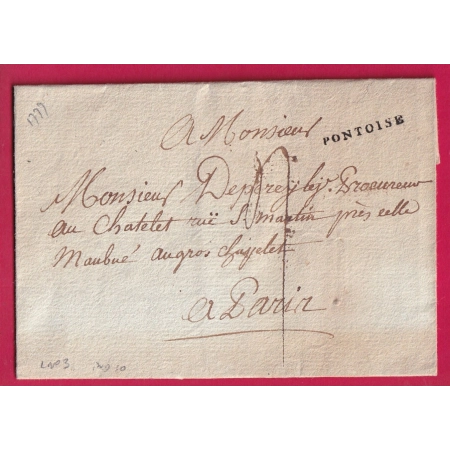 1777
A Monsieur
PONTOISE
Monsieur Procureur
au Chatelet ruë St martin près celle
Maubué au gros Chapelet
A Paris
L n°3